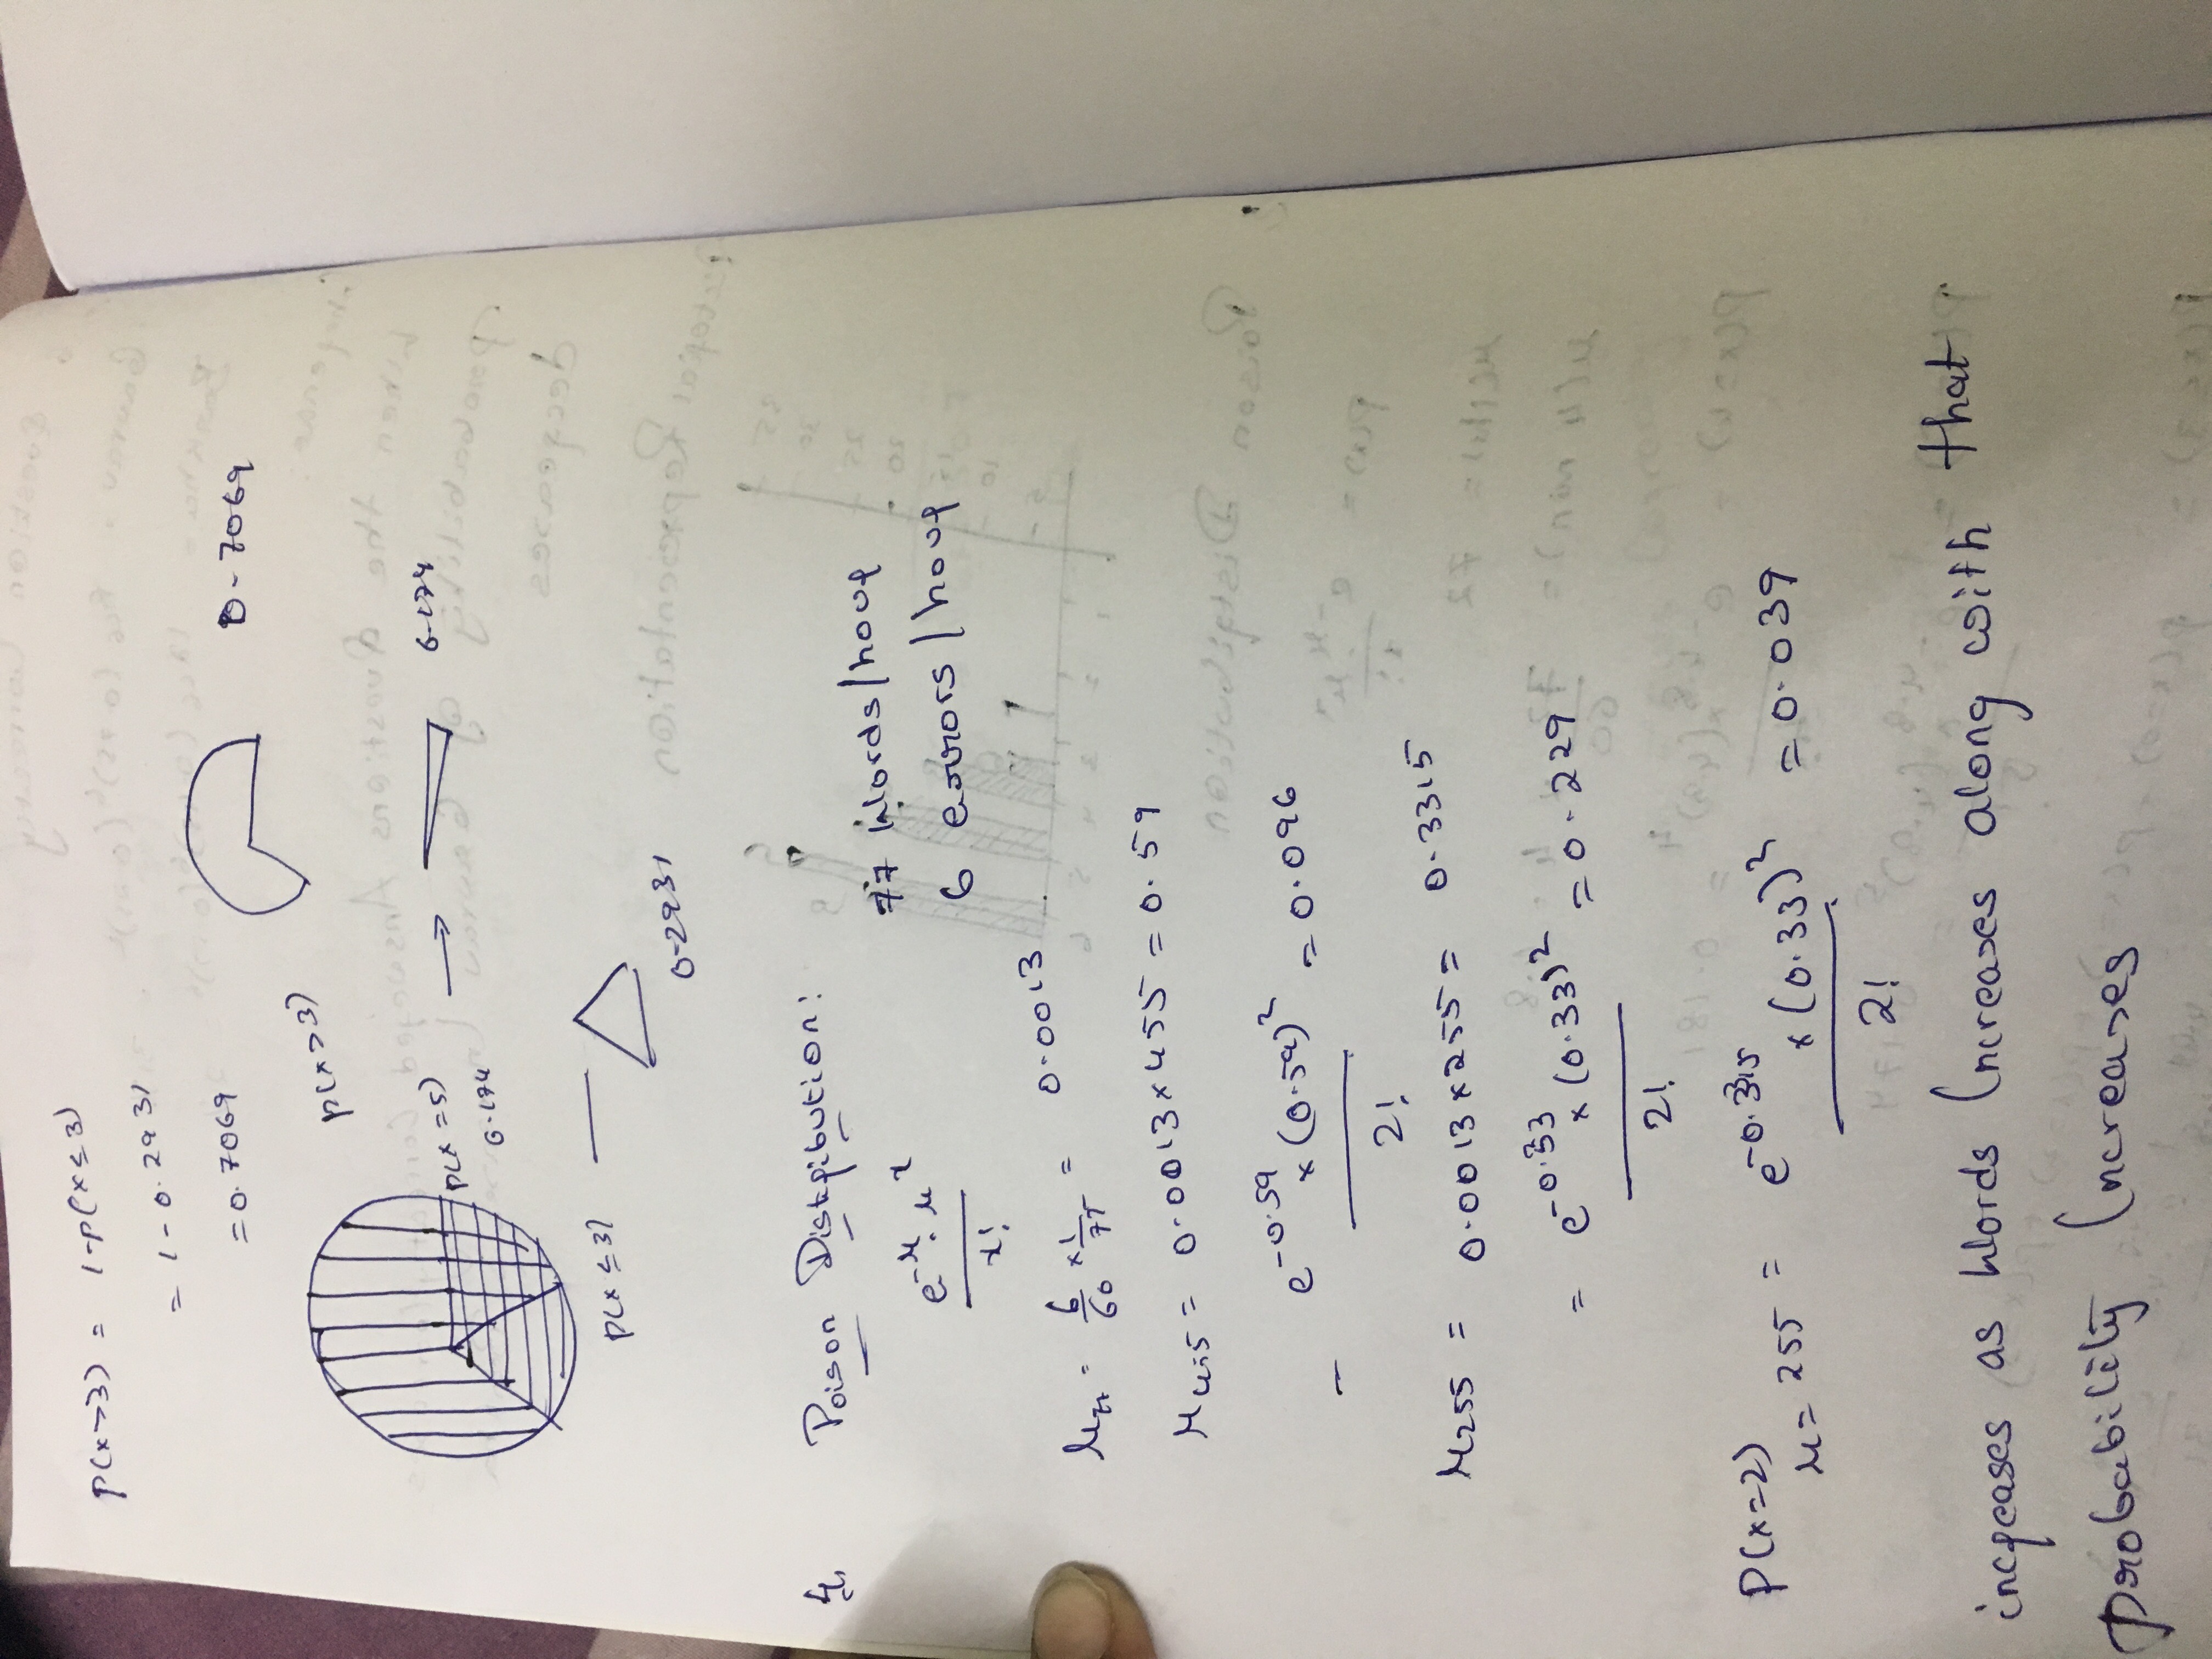 P(x>3) = 1-P(x≤3)
= 1-0.2931
= 0.7069
0-7069
P(x>3)
P(x=5)
0.174
0.174
P(x≤3)
0.2931
4. Poison Distribution:
77 Words/hour
6 errors/hour
e^-μ . μ^x
x!
μ77 = 6/60 × 1/77 = 0.0013
μ455 = 0.0013×455 = 0.59
= e^-0.59 × (0.59)^2 = 0.096
2!
μ255 = 0.0013×255 = 0.3315
= e^-0.33 × (0.33)^2 = 0.229
2!
P(x=2)
μ= 255 = e^-0.3315 × (0.33)^2 = 0.039
2!
increases as Words Increases along with that
Probability Increases